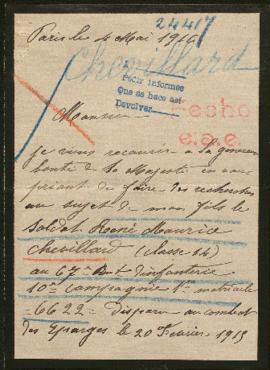 24417
Paris le 4 Mai 1916
Chevillard
Pedir informes
Que se hace así
Devolver
Hecho
e.a.e.
Monsieur
Je viens recourir à la grande
bonté de Sa Majesté en vous
priant de faire des recherches
au sujet de mon fils le
Soldat René Maurice
Chevillard (classe 14)
au 67e Rt d'infanterie
10me compagnie Nº matricule
6622 - Disparu au combat
des Eparges le 20 Février 1915